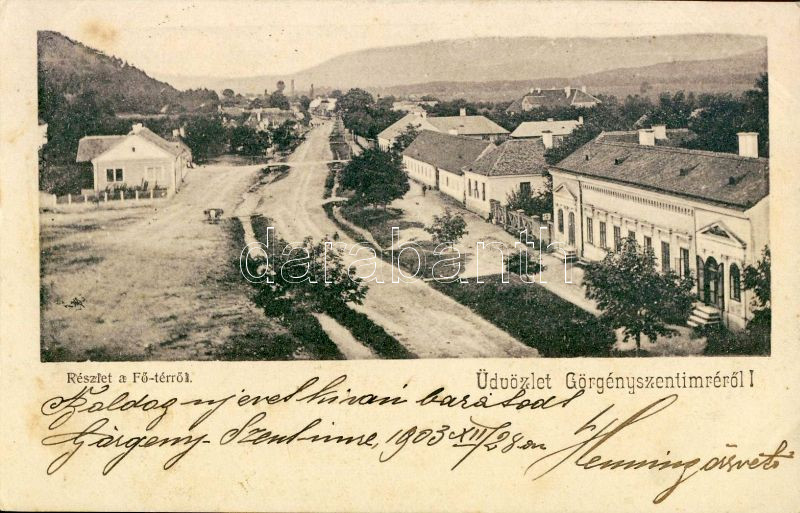 darabanth.com
Részlet a Fő-térről.
Üdvözlet Görgényszentimréről!
Boldog ujevet kiván barátod
Görgeny-Szentimre, 1903 XII/28án
Henning